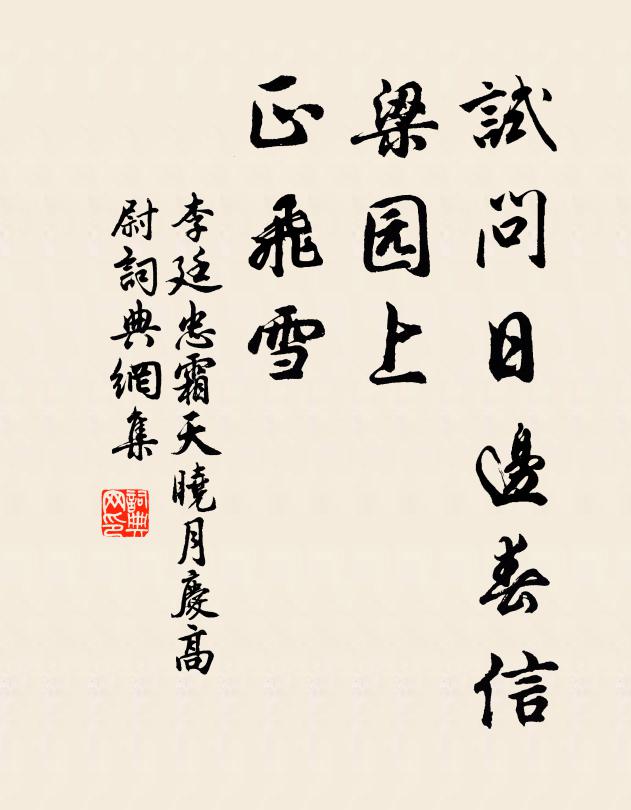 試問日邊春信
梁园上
正飛雪
李廷忠霜天曉月慶高
尉詞典網集
詞典
网印